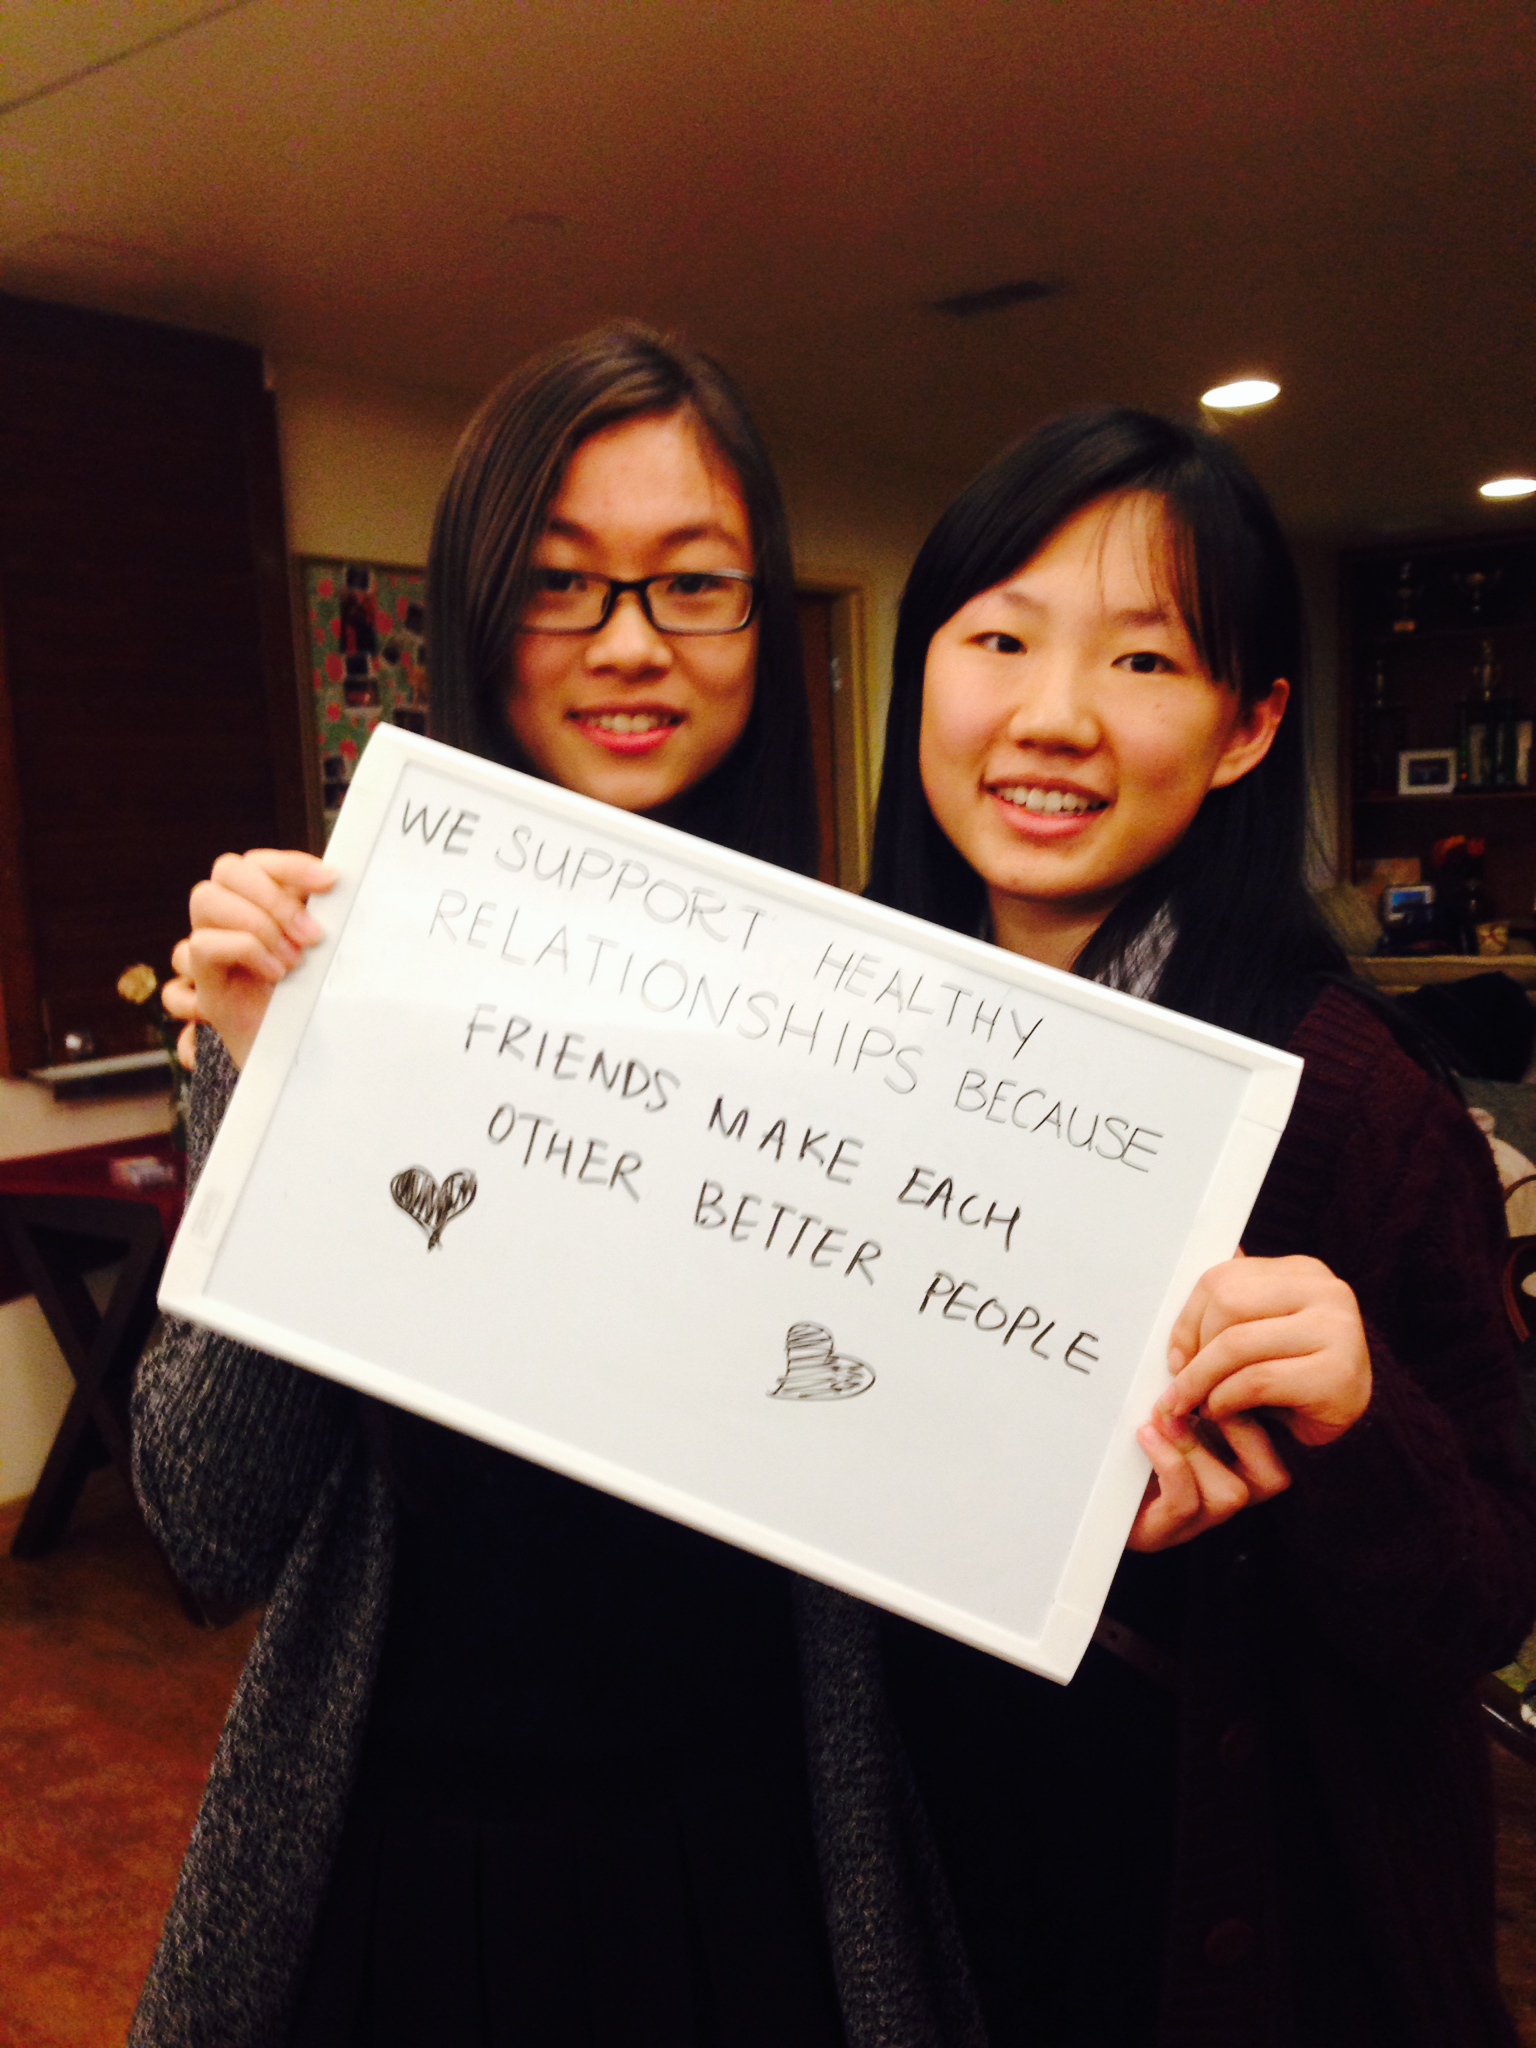 WE SUPPORT HEALTHY
RELATIONSHIPS BECAUSE
FRIENDS MAKE EACH
OTHER BETTER PEOPLE